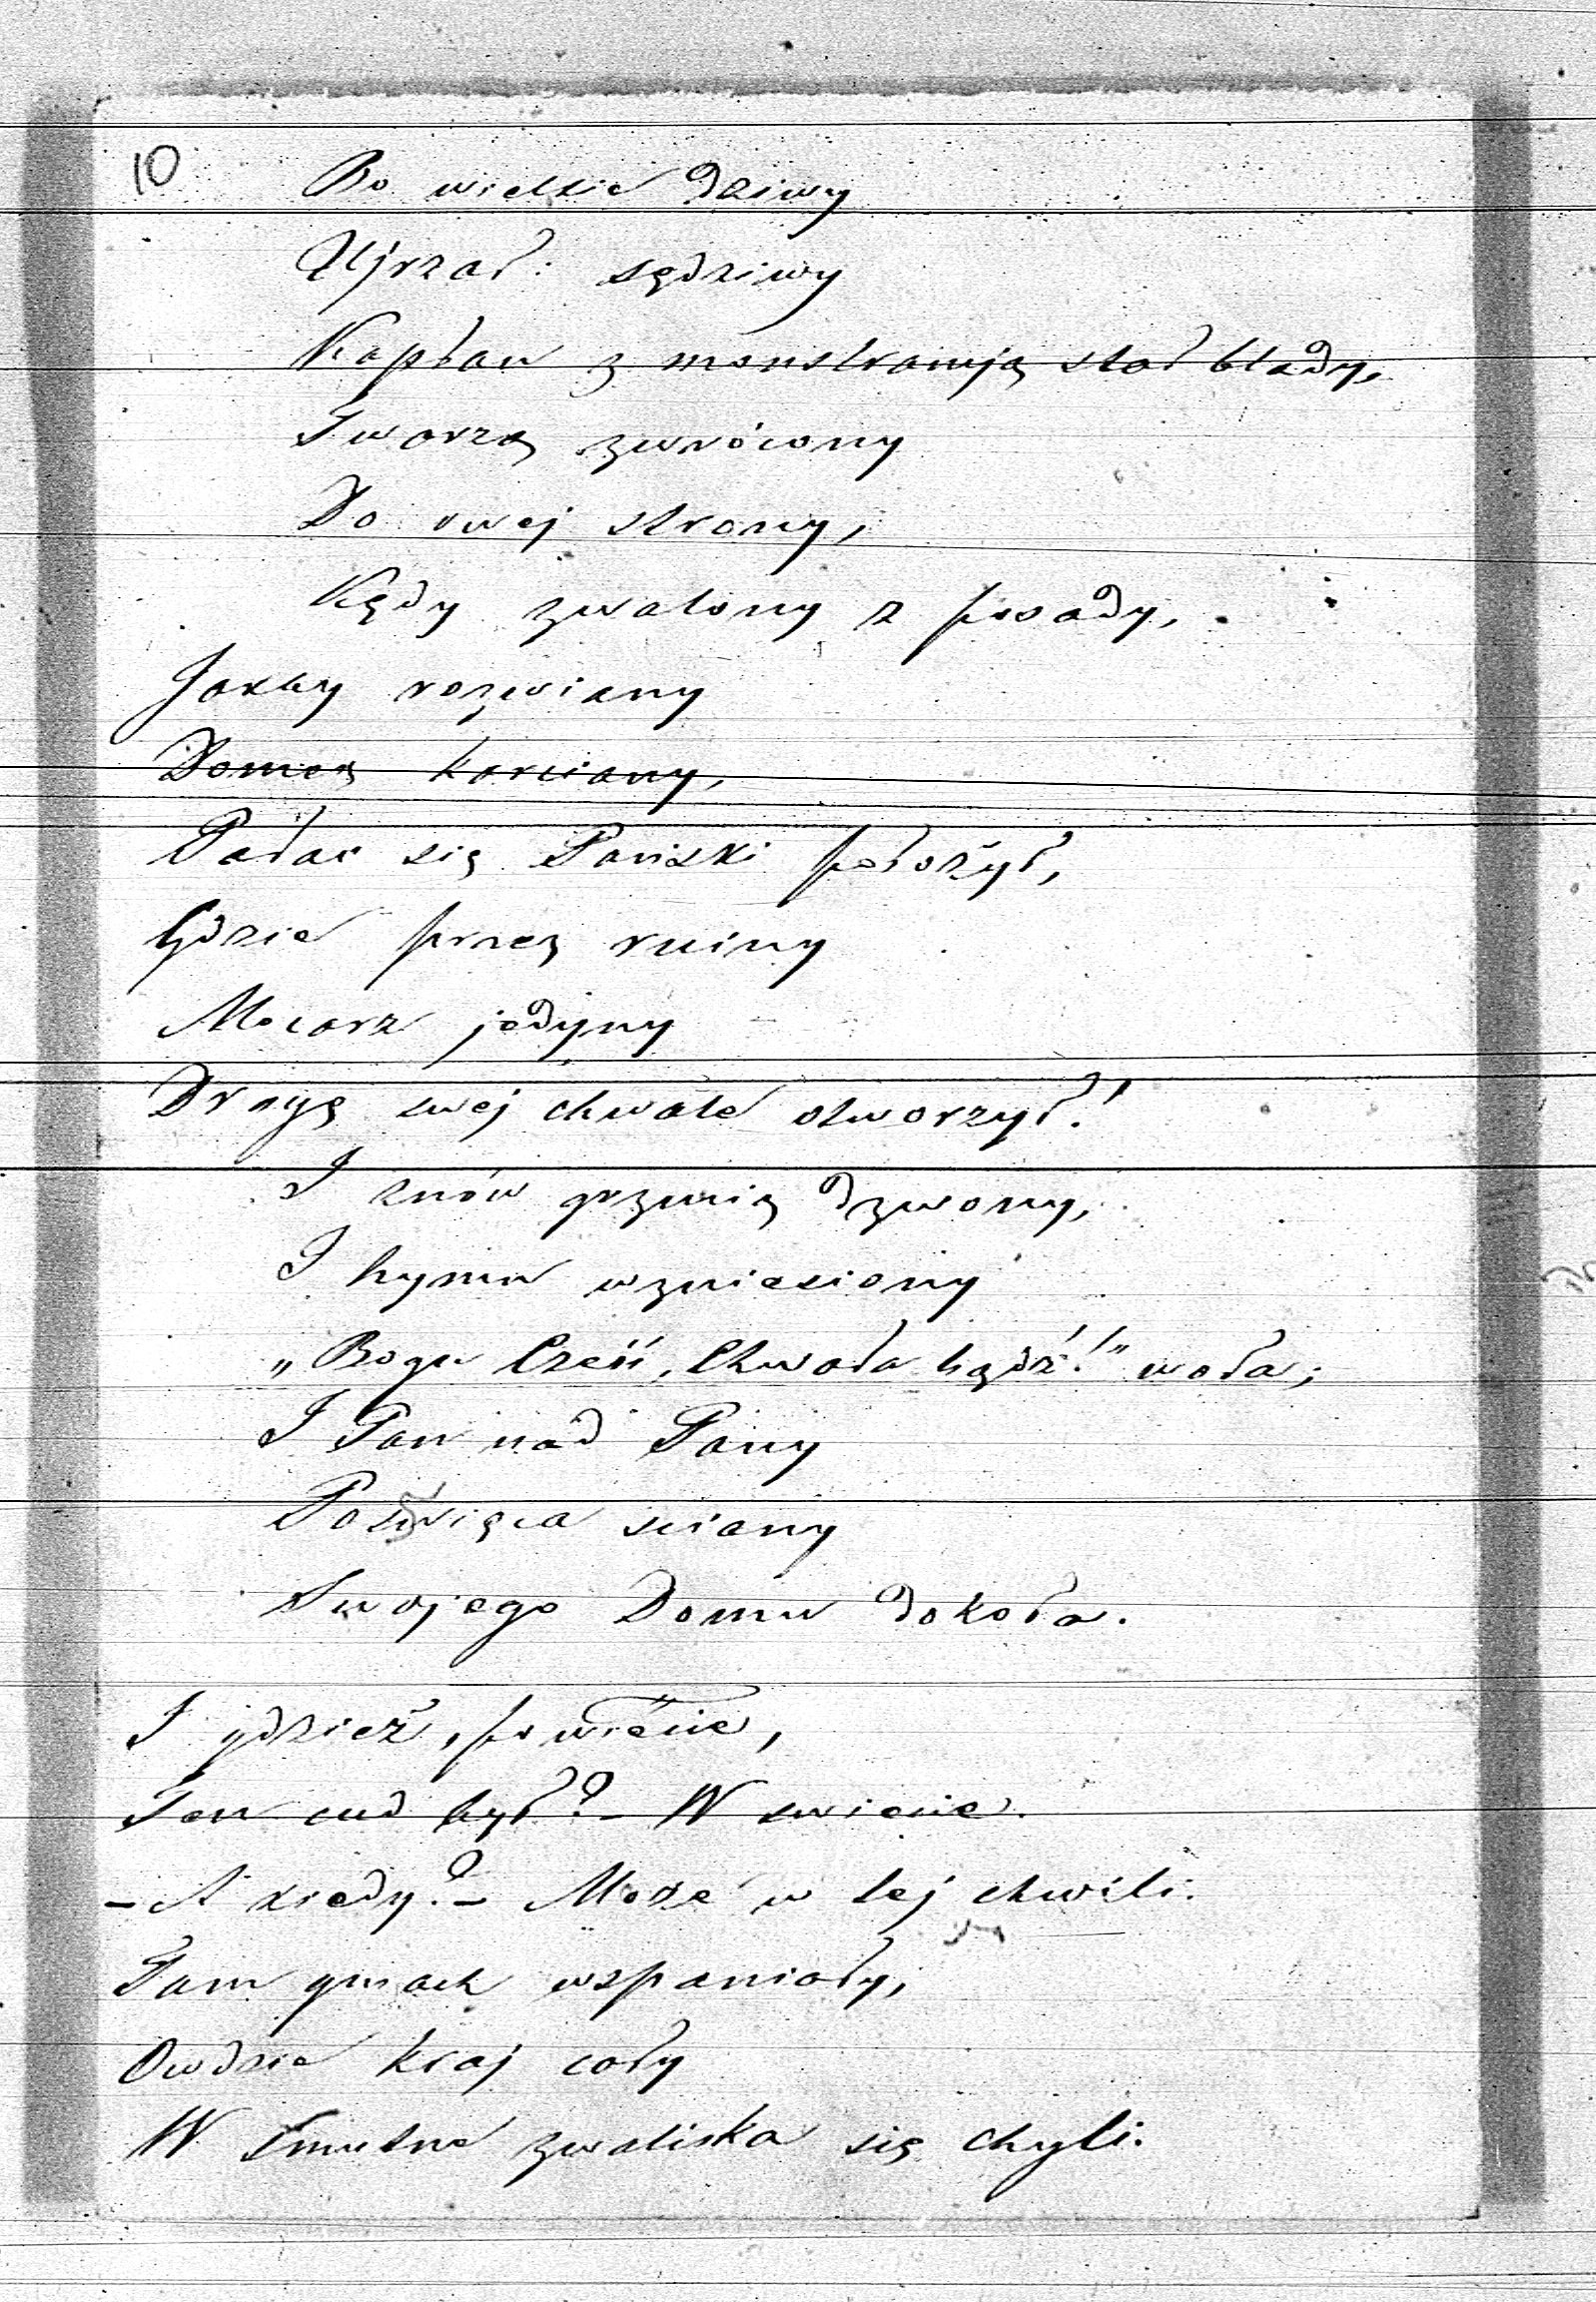 10
Bo wielkie dziwy
Ujrzał: sędziwy
Kapłan z monstrancją stał blady,
Twarzą zwrócony
Do owej strony,
Kędy zwalony z posady,
Jakby rozwiany
Domek karciany,
Pałac się Pański położył,
Gdzie przez ruiny
Mocarz jedyny
Drogę swej chwale otworzył!
I znów grzmią dzwony,
I hymn wzniesiony
„Bogu Cześć, Chwała bądź!" woła;
I Pan nad Pany
Poświęca ściany
Swojego Domu dokoła.
I gdzież, powiécie,
Ten cud był? – W świecie.
– A kiedy? – Może w tej chwili.
Tam gmach wspaniały,
Owdzie kraj cały
W smutne zwaliska się chyli.